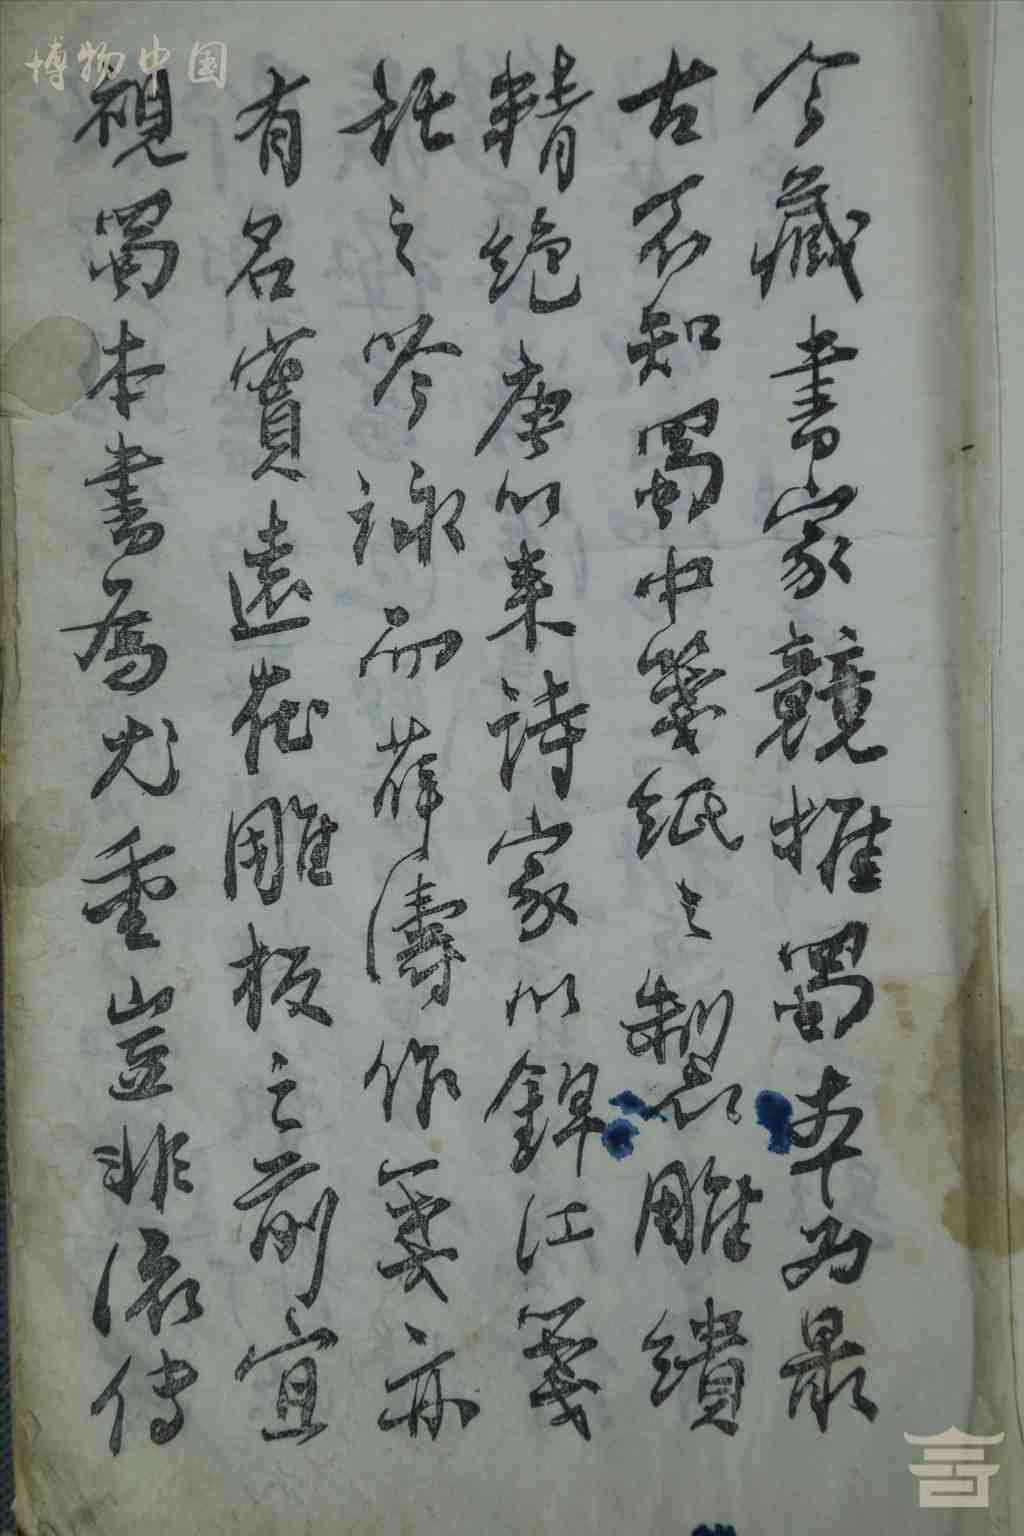 博物中国
今藏書家競推蜀本為最
古不知蜀中箋紙之製雕繢
精絶唐以来詩家以錦江箋
託之吟詠而薛濤作箋亦
有名實遠在雕板之前宜
視蜀本書為尤重豈非流傳